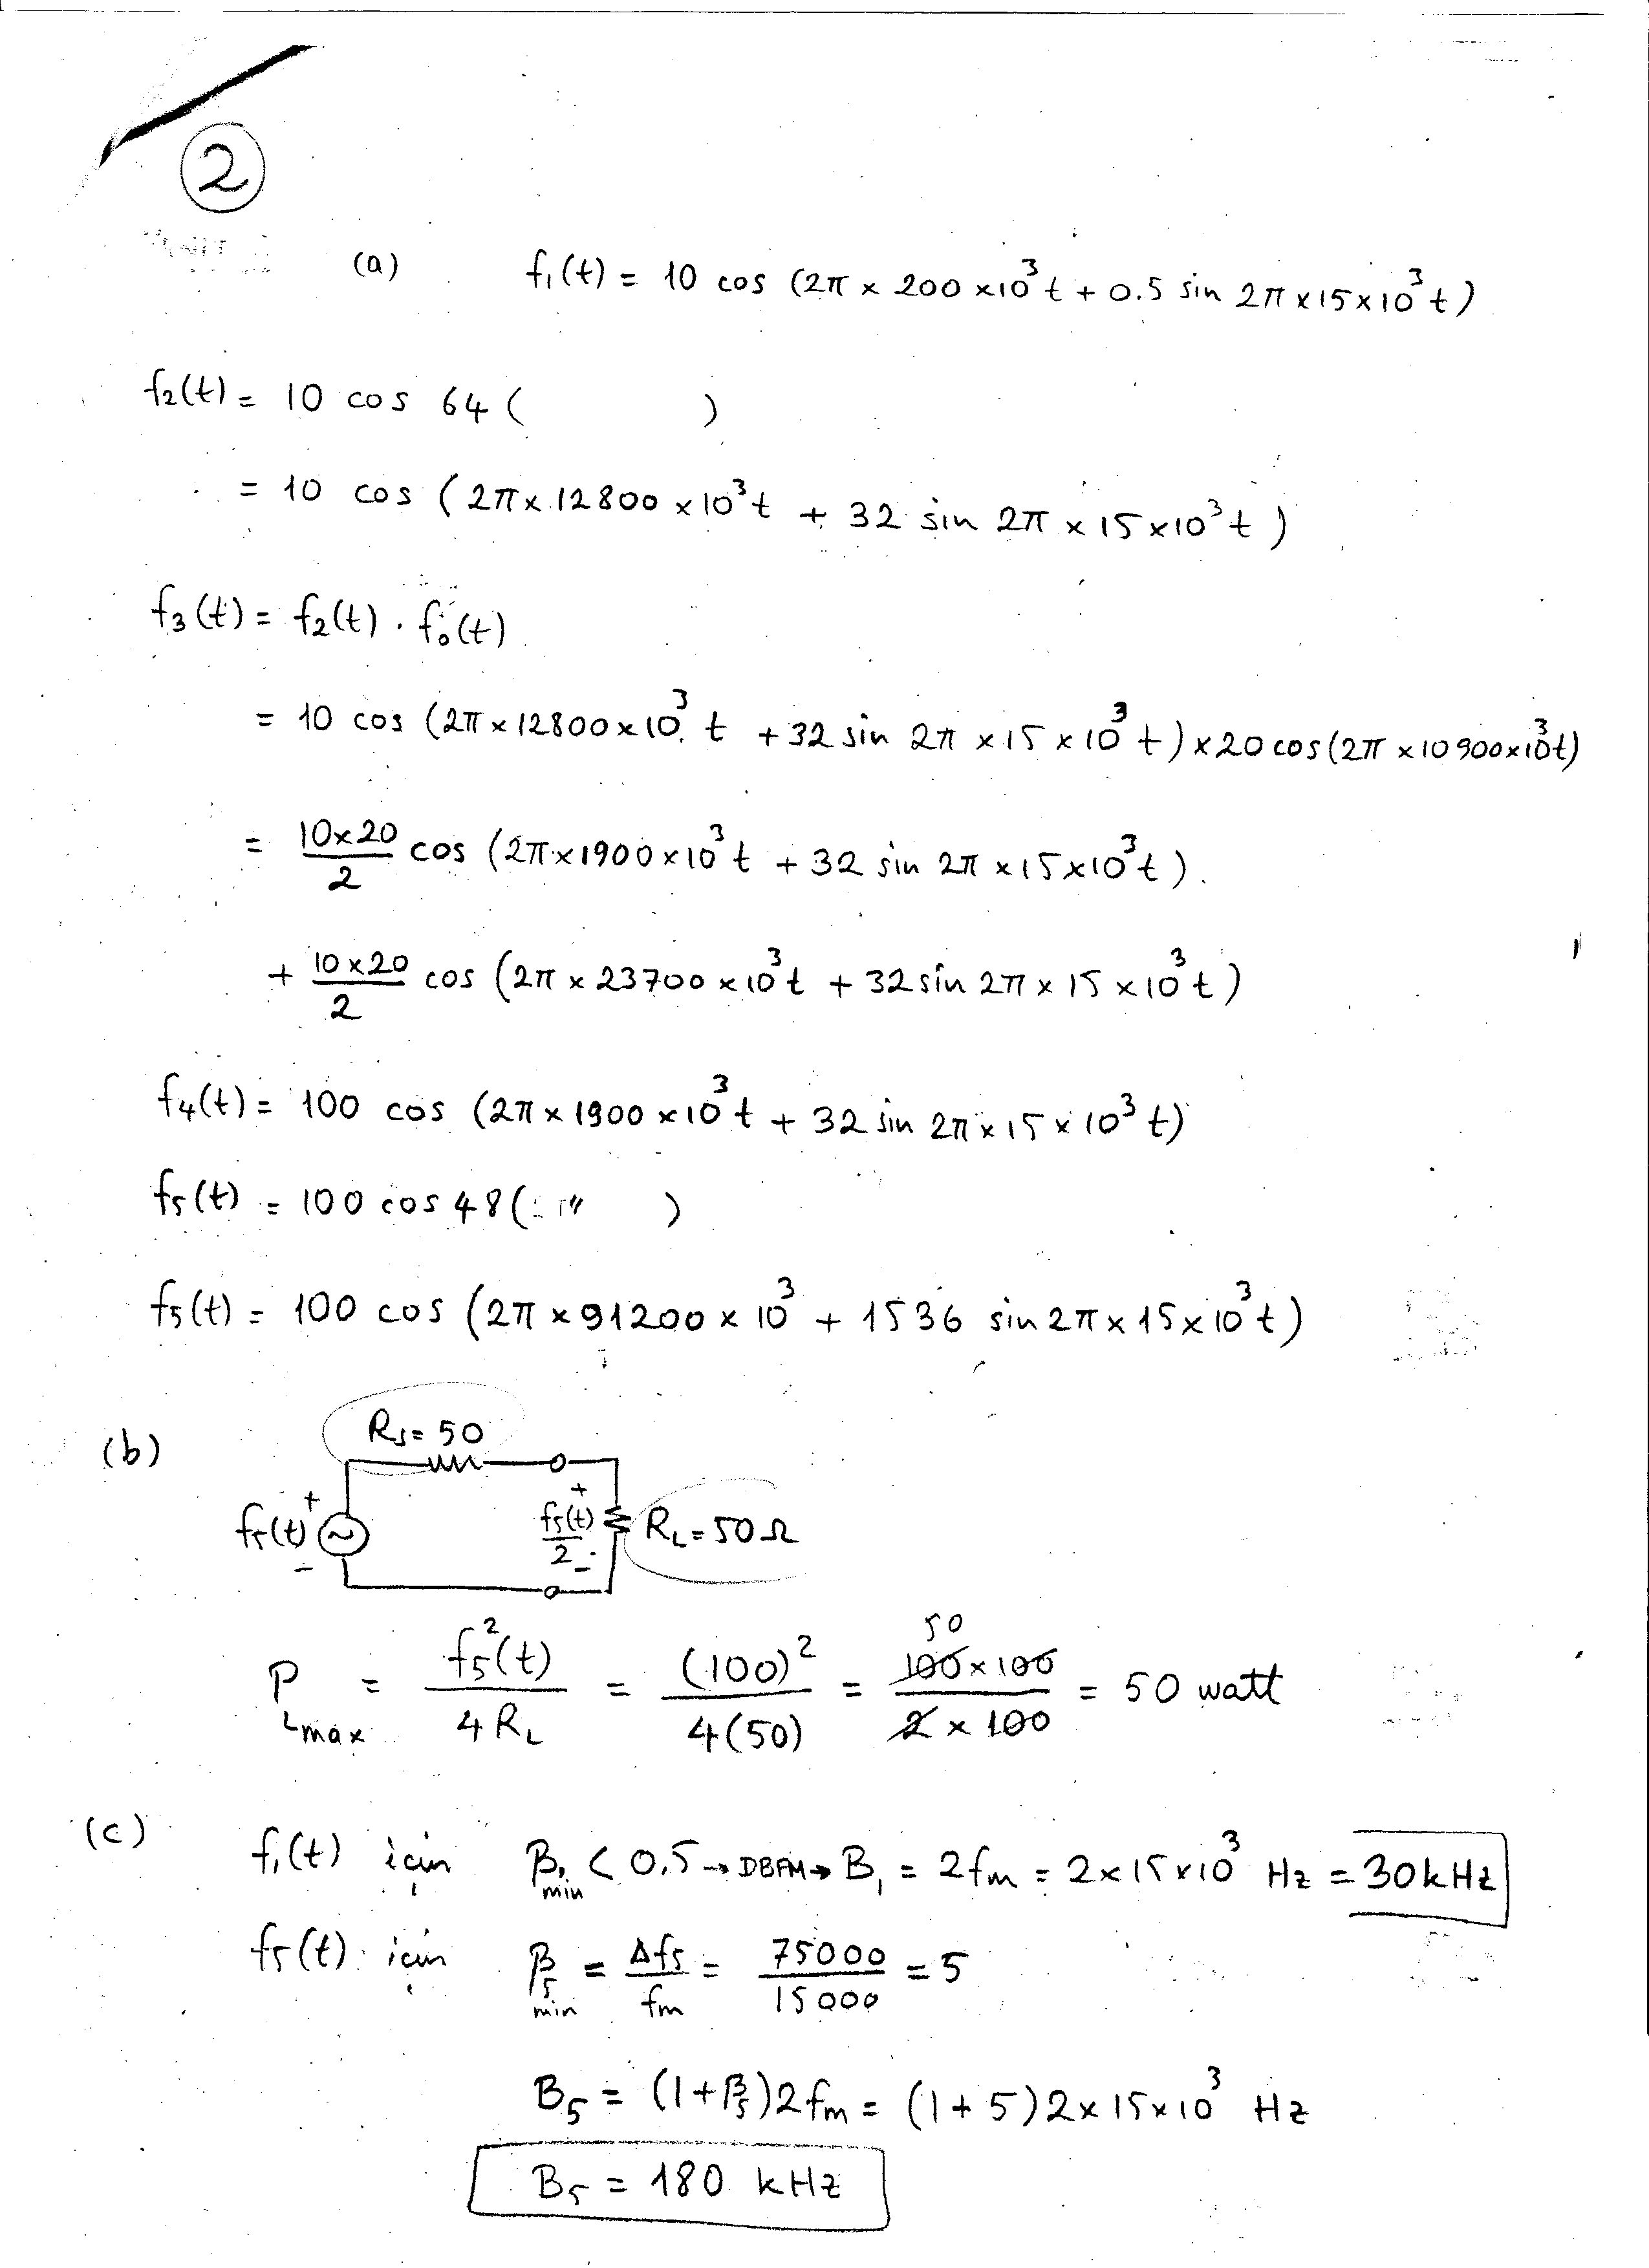 2
(a) f₁(t) = 10 cos (2π × 200 × 10³ t + 0.5 sin 2π × 15 × 10³ t)
f₂(t) = 10 cos 64 ( )
= 10 cos (2π × 12800 × 10³ t + 32 sin 2π × 15 × 10³ t)
f₃(t) = f₂(t) . f₀(t)
= 10 cos (2π × 12800 × 10³ t + 32 sin 2π × 15 × 10³ t) × 20 cos (2π × 10900 × 10³ t)
= 10×20/2 cos (2π × 1900 × 10³ t + 32 sin 2π × 15 × 10³ t)
+ 10×20/2 cos (2π × 23700 × 10³ t + 32 sin 2π × 15 × 10³ t)
f₄(t) = 100 cos (2π × 1900 × 10³ t + 32 sin 2π × 15 × 10³ t)
f₅(t) = 100 cos 48 ( " )
f₅(t) = 100 cos (2π × 91200 × 10³ + 1536 sin 2π × 15 × 10³ t)
(b) Rs = 50
f₅(t) + - + f₅(t)/2 - R_L = 50Ω
P_Lmax = f₅²(t)/4R_L = (100)²/4(50) = 50 100×100/2×100 = 50 watt
(c) f₁(t) için β₁min < 0.5 → DBFM → B₁ = 2fm = 2×15×10³ Hz = 30 kHz
f₅(t) için β₅min = Δf₅/fm = 75000/15000 = 5
B₅ = (1+β₅)2fm = (1+5)2×15×10³ Hz
B₅ = 180 kHz